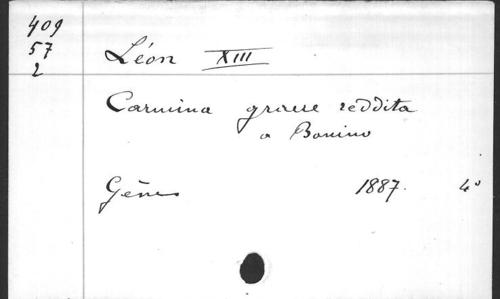 409
57
2
Léon XIII
Carmina graece reddita
a Bonino
Gênes 1887. 4°